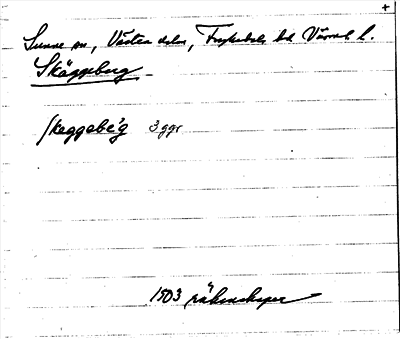 +
Sunne sn, Västra delen, Fryksdals hd Värml l.
Skäggeberg
Skeggebe'g 3 ggr
1503 räkenskaper